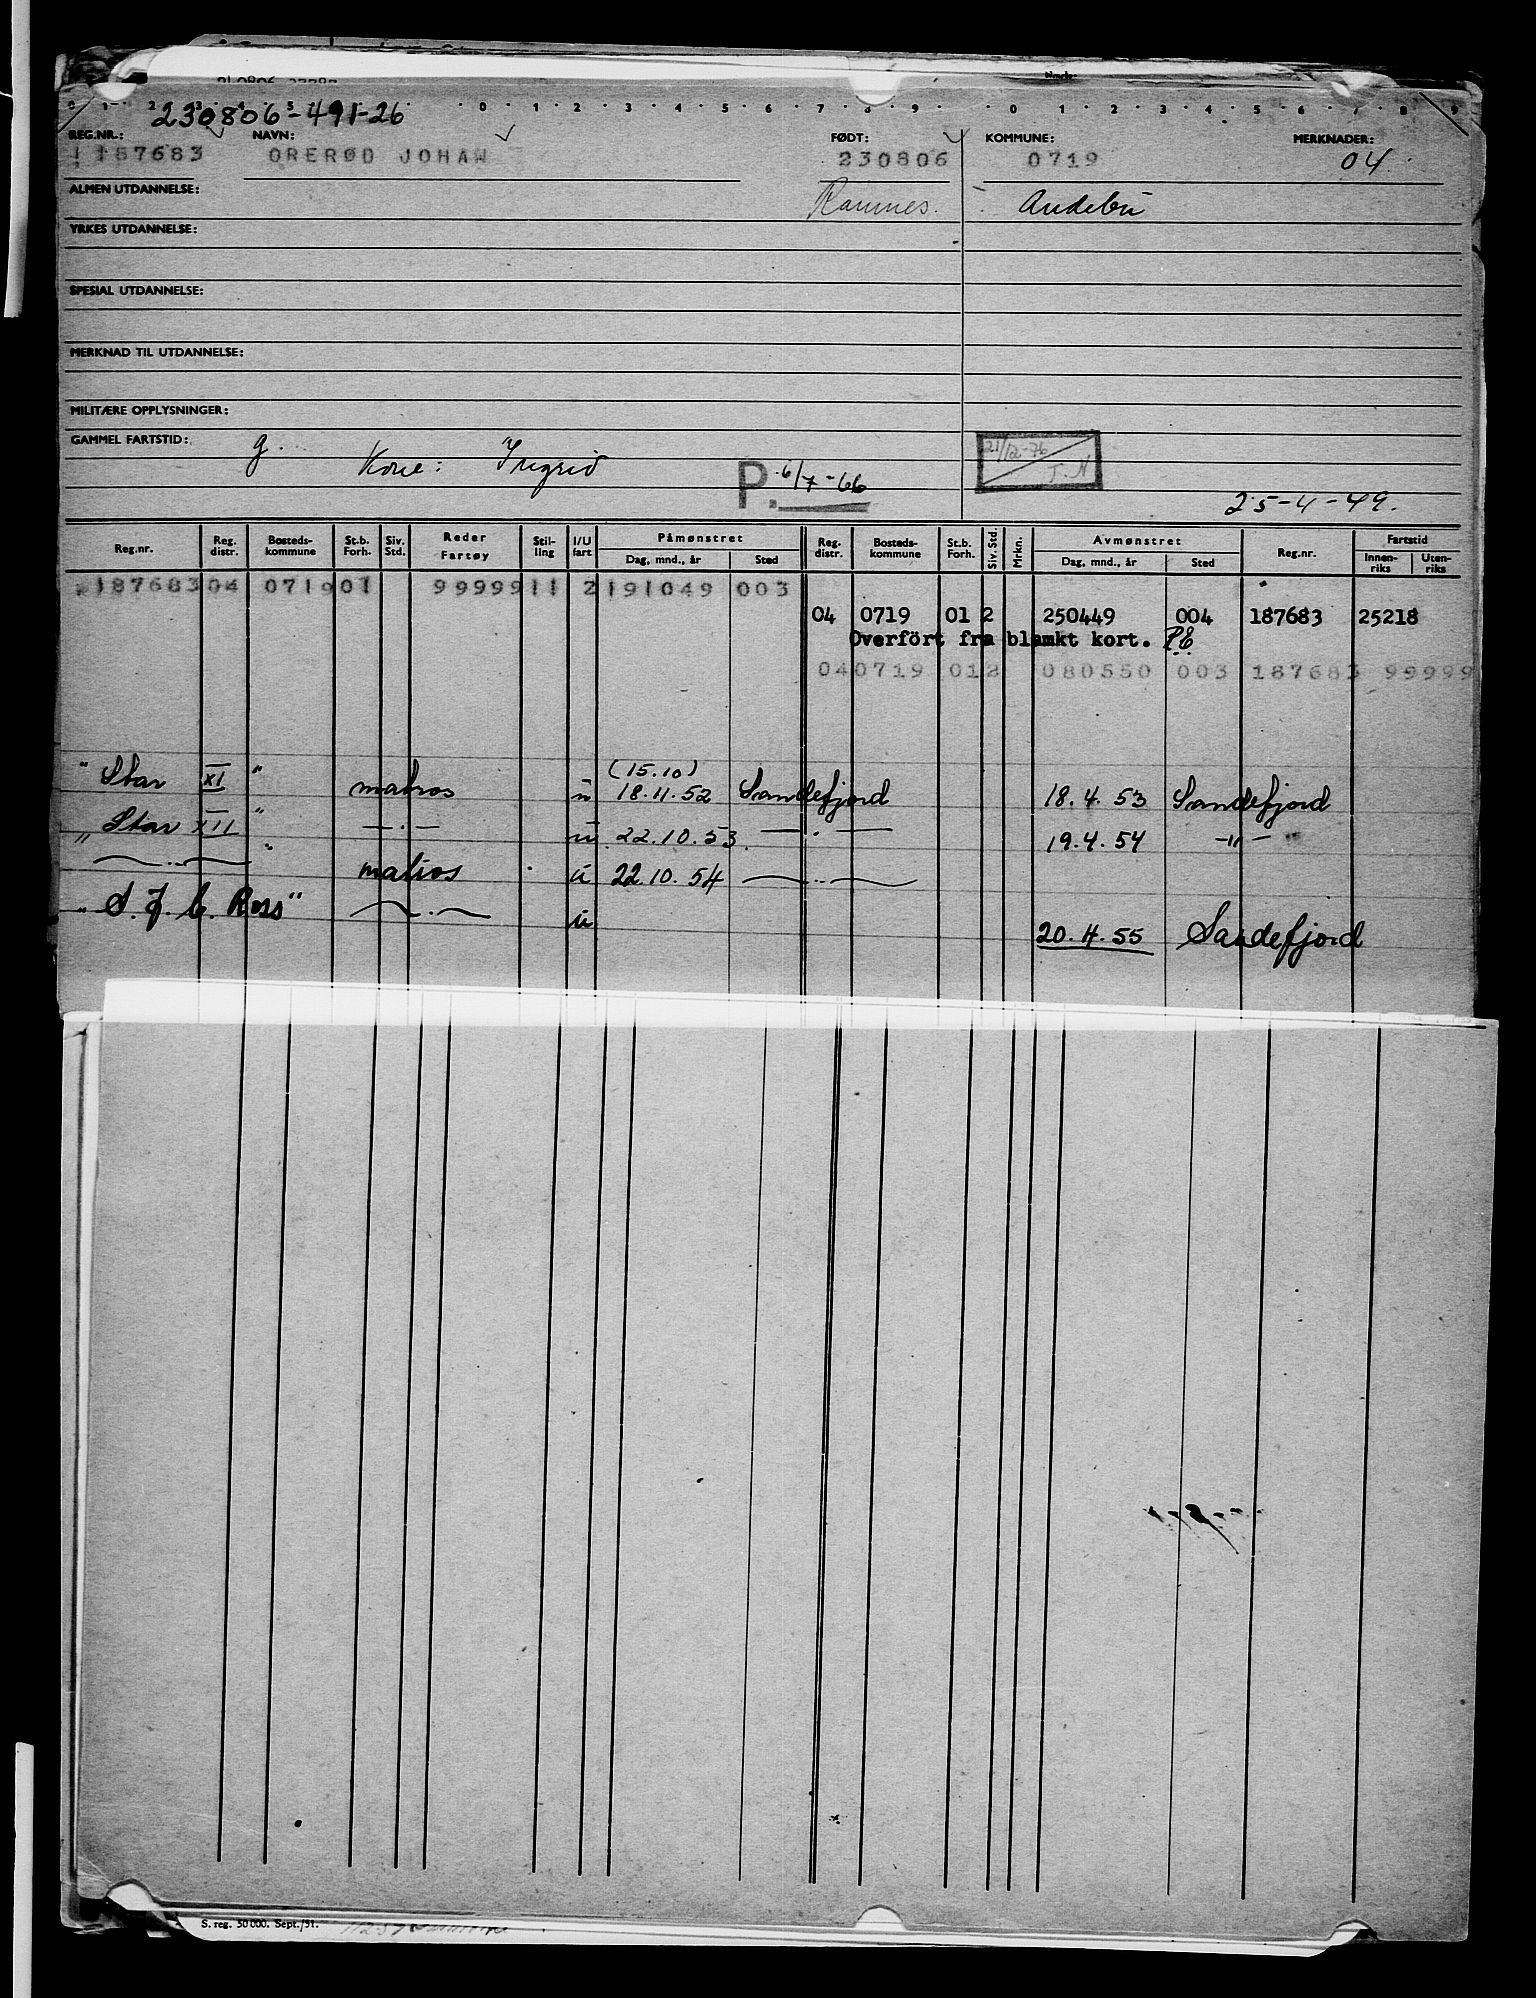 0 1 2 3 4 5 0 1 2 3 4 5 6 7 8 9 0 1 2 3 4 5 6 7 8 9
230806-491-26
REG.NR.: NAVN: FØDT: KOMMUNE: MERKNADER:
187683 ORERØD JOHAN 230806 0719 04
ALMEN UTDANNELSE: Ramnes. Andebu
YRKES UTDANNELSE:
SPESIAL UTDANNELSE:
MERKNAD TIL UTDANNELSE:
MILITÆRE OPPLYSNINGER:
GAMMEL FARTSTID: g. Kone: Ingrid
P. 6/7-66 21/12-76 T.N
25-4-49.
Reg.nr. Reg. distr. Bosteds-kommune St.b. Forh. Siv. Std. Reder Fartøy Stil-ling I/U fart Påmønstret Dag, mnd., år Sted Reg. distr. Bosteds-kommune St.b. Forh. Siv. Std. Mrkn. Avmønstret Dag, mnd., år Sted Reg.nr. Fartstid Innen-riks Uten-riks
187683 04 0719 01 99999 11 2 191049 003
04 0719 01 2 250449 004 187683 25218
Overfört fra blamkt kort. P.E
04 0719 01 2 080550 003 187683 99999
(15.10)
"Star XI" matros u 18.11.52 Sandefjord 18.4.53 Sandefjord
"Star XII" —.— u 22.10.53. —.— 19.4.54 —"—
—..—" matros u 22.10.54 —..—
"S. J. C. Ross" —.— u 20.4.55 Sandefjord
S. reg. 50 000. Sept./51.